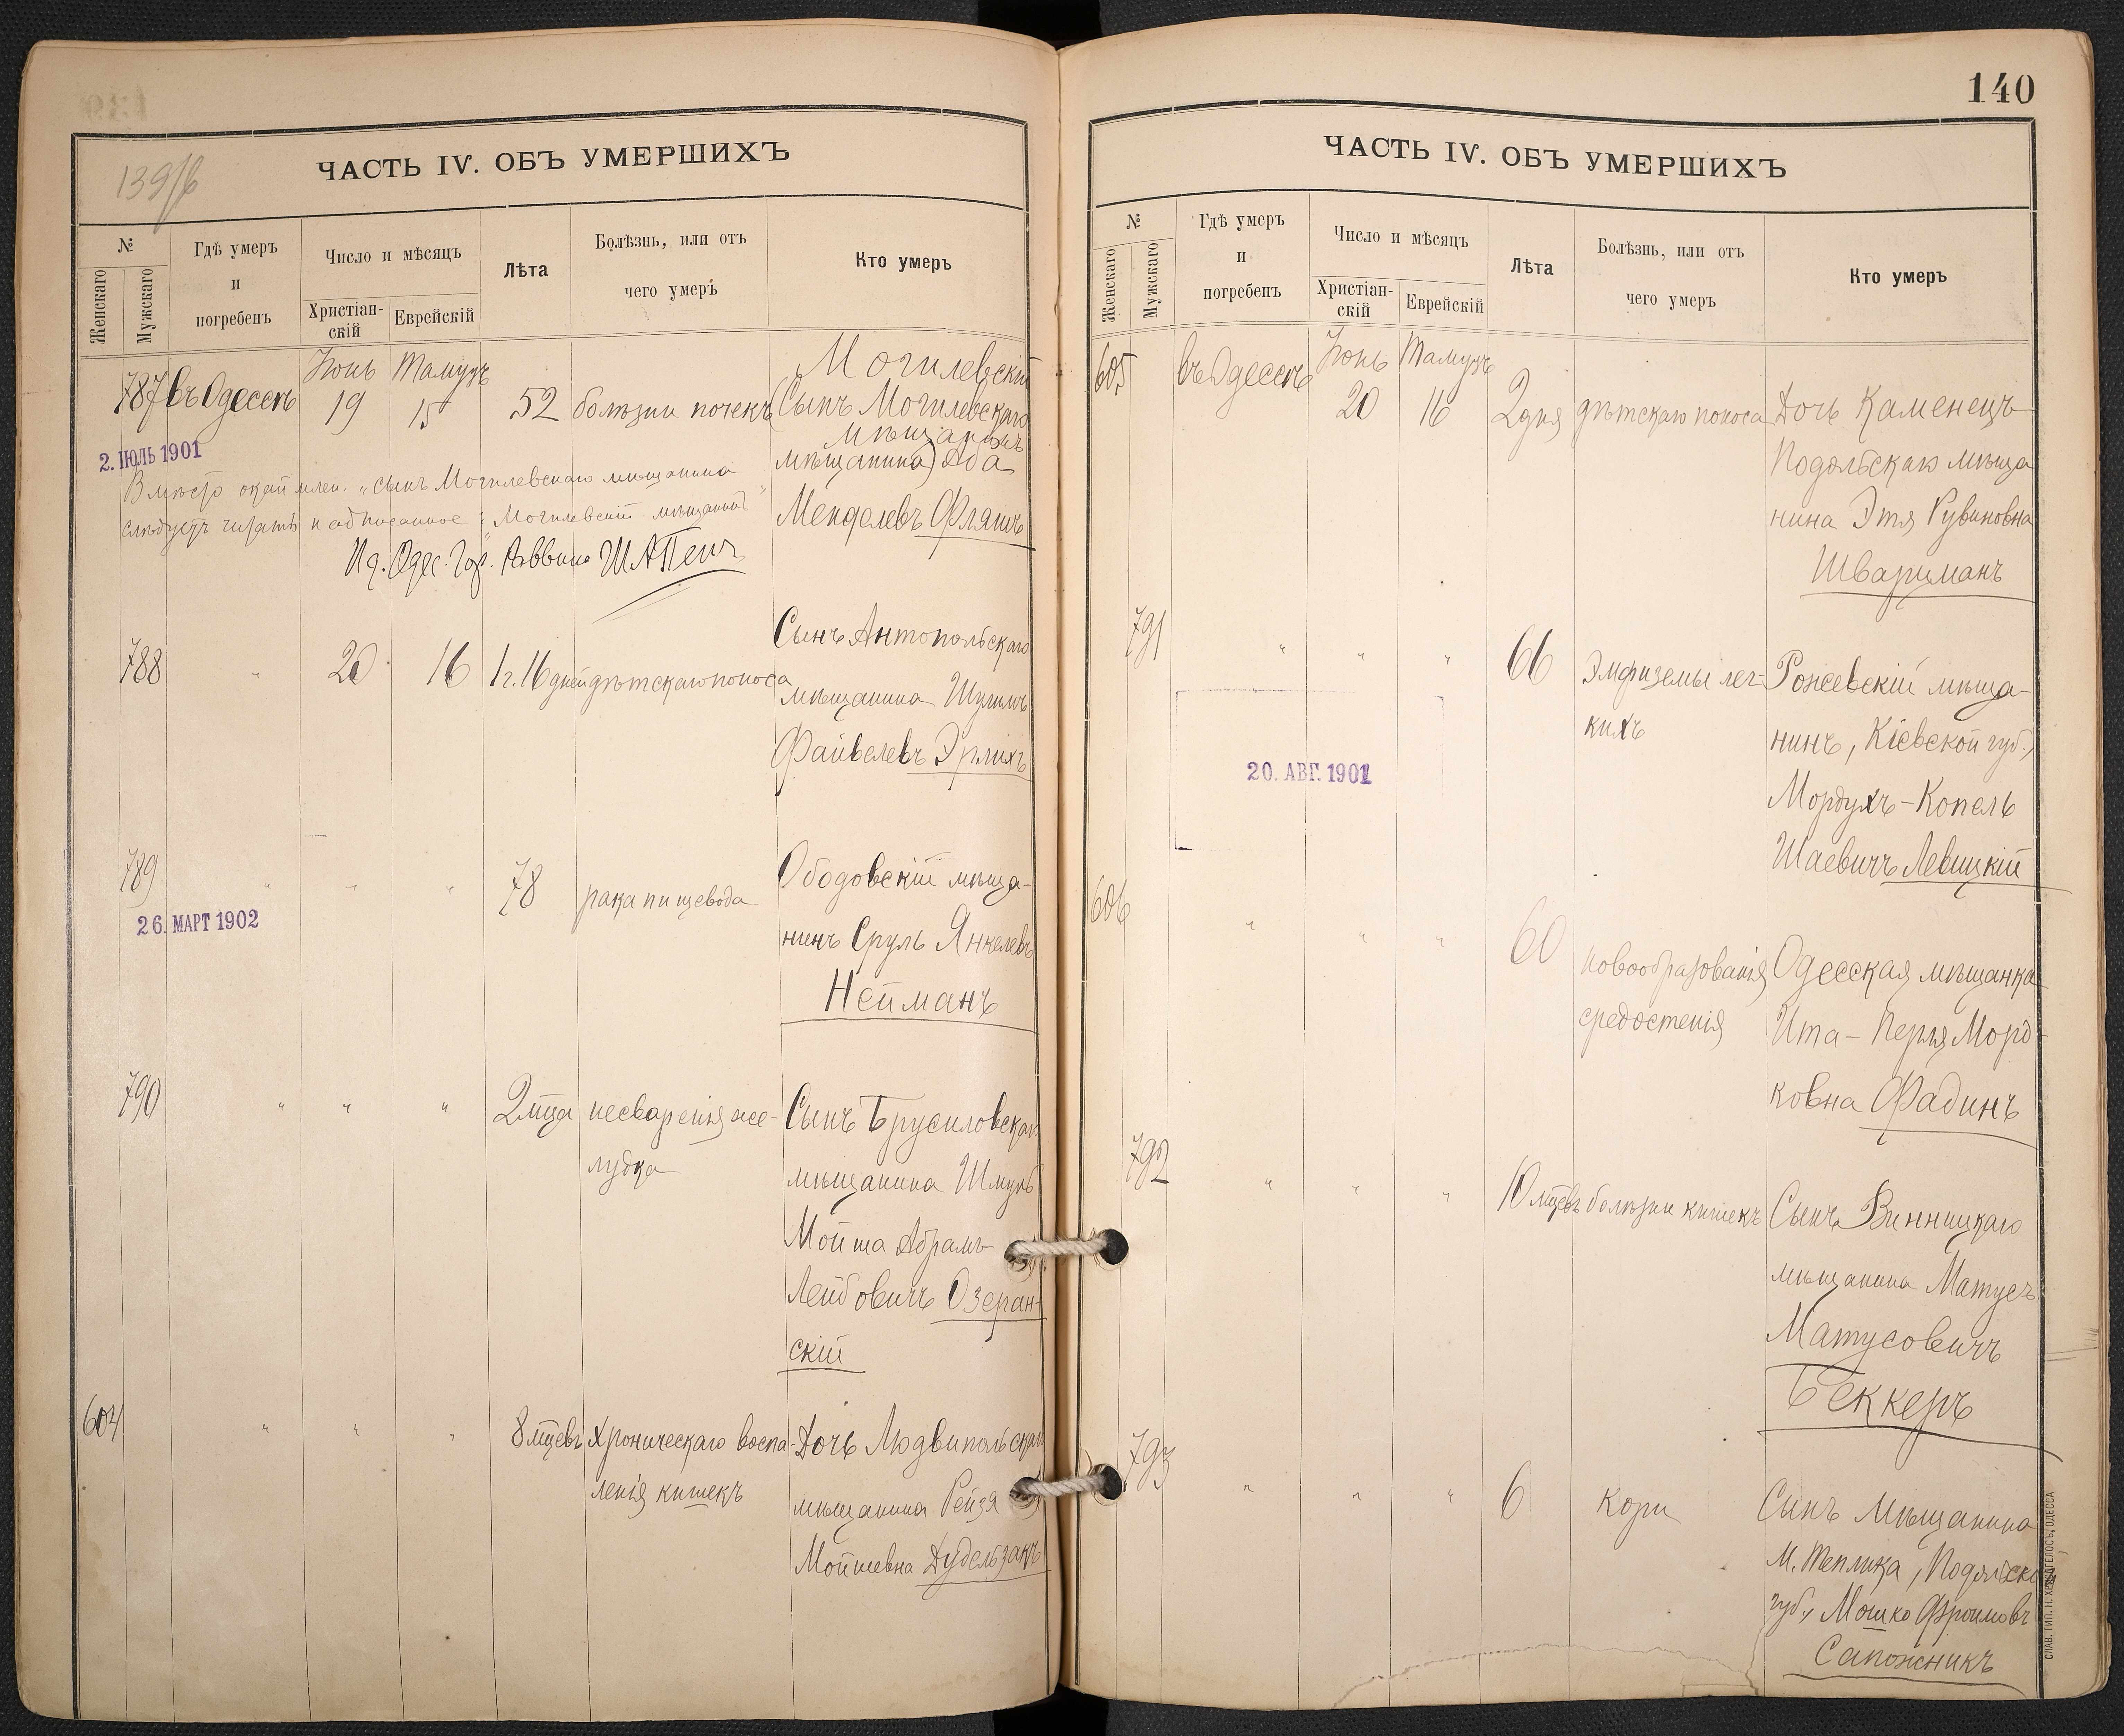 139/б
ЧАСТЬ IV. ОБЪ УМЕРШИХЪ
№
Женскаго
Мужскаго
Гдѣ умеръ
и
погребенъ
Число и мѣсяцъ
Христіан-
скій
Еврейскій
Лѣта
Болѣзнь, или отъ
чего умеръ
Кто умеръ
787 въ Одессѣ Іюнь 19 Тамузъ 15 52 болѣзни почекъ
Могилевскій
(Сынъ Могилевскаго
мѣщанинъ
мѣщанина) Аба
Менделевъ Фляшъ
2. ІЮЛЬ 1901
Вмѣсто окаймлен. „сынъ Могилевскаго мѣщанина
слѣдуетъ читать надписанное: „Могилевскій мѣщанинъ"
Ид. Одес. Гор. Раввина
788 " 20 16 1 г. 16 дней дѣтскаго поноса
Сынъ Антопольскаго
мѣщанина Шулимъ
Файвелевъ Эрлихъ
789 " " " 78 рака пищевода
Ободовскій мѣща-
нинъ Сруль Янкелевъ
Нейманъ
26. МАРТ 1902
790 " " " 2 мѣца несваренія же-
лудка
Сынъ Брусиловскаго
мѣщанина Шмуль
Мойша Абрамъ-
Лейбовичъ Озеран-
скій
604 " " " 8 мѣцевъ хроническаго воспа-
ленія кишекъ
Дочь Людвипольскаго
мѣщанина Рейзя
Мойшевна Дудельзакъ
140
ЧАСТЬ IV. ОБЪ УМЕРШИХЪ
№
Женскаго
Мужскаго
Гдѣ умеръ
и
погребенъ
Число и мѣсяцъ
Христіан-
скій
Еврейскій
Лѣта
Болѣзнь, или отъ
чего умеръ
Кто умеръ
605 въ Одессѣ Іюнь 20 Тамузъ 16 2 дня дѣтскаго поноса
Дочь Каменецъ-
Подольскаго мѣща
нина Этя Рувиновна
Шварцманъ
791 " " " 66 Эмфиземы лег-
кихъ
Рожевскій мѣща-
нинъ, Кіевской губ.,
Мордухъ-Копель
Шаевичъ Левицкій
20. АВГ. 1901
606 " " " 60 новообразованія
средостенія
Одесская мѣщанка
Ита-Перля Морд-
ковна Фадинъ
792 " " " 10 мѣцевъ болѣзни кишекъ
Сынъ Винницкаго
мѣщанина Матусъ
Матусовичъ
Беккеръ
793 " " " 6 кори
Сынъ мѣщанина
м. Теплика, Подольской
губ., Мошко Фроимовъ
Сапожникъ